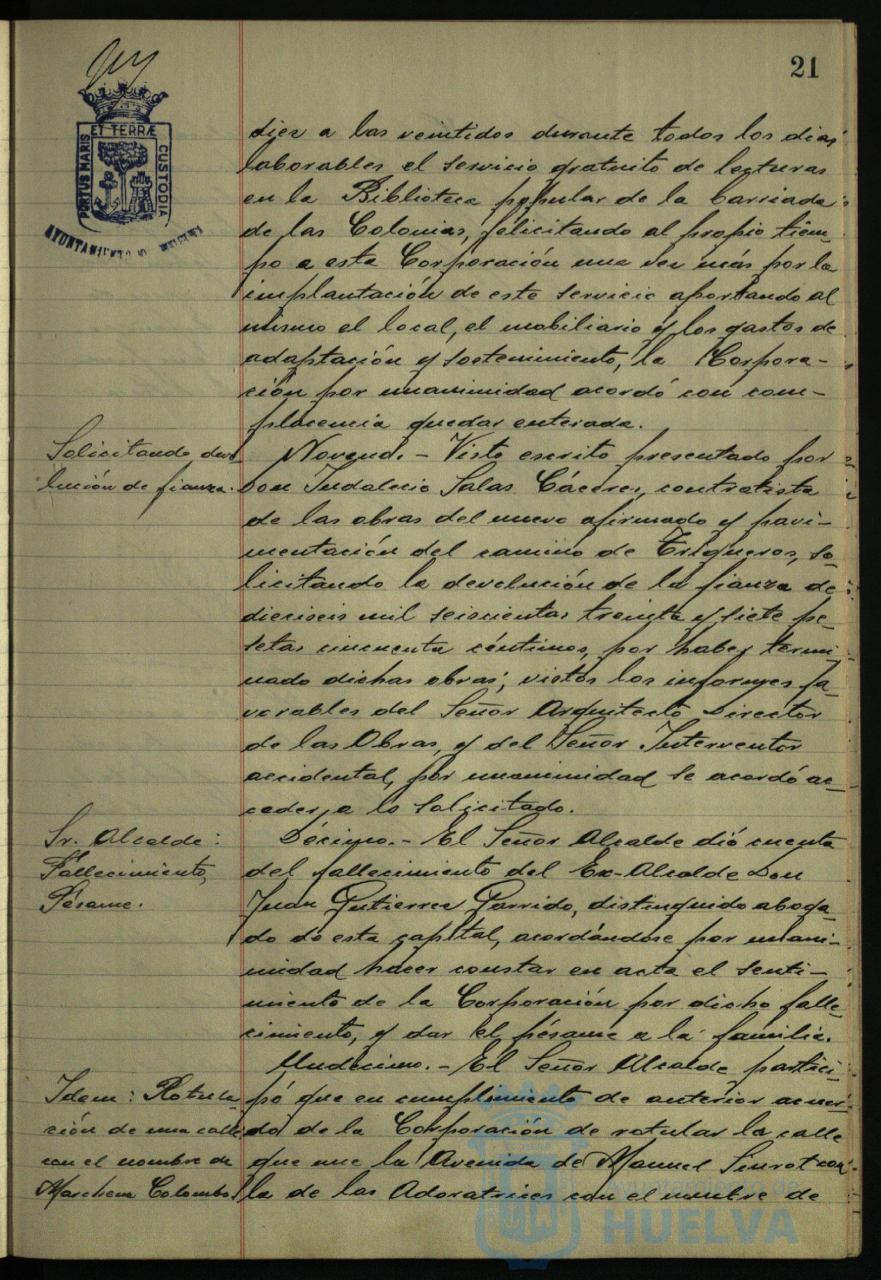 21
ET TERRÆ
PORTUS MARIS
CUSTODIA
AYUNTAMIENTO
diez a las veintidos durante todos los dias
laborables el servicio gratuito de lecturas
en la Biblioteca popular de la barriada
de las Colonias, felicitando al propio tiem-
po a esta Corporación una vez más por la
implantación de este servicio aportando al
mismo el local, el mobiliario y los gastos de
adaptación y sostenimiento, la Corpora-
ción por unanimidad acordó con com-
placencia quedar enterada.
Solicitando devo
lución de fianza.
Noveno. - Visto escrito presentado por
Don Indalecio Salas Cáceres, contratista
de las obras del nuevo afirmado y pavi-
mentación del camino de Trigueros, so-
licitando la devolución de la fianza de
dieciseis mil seiscientas treinta y siete pe-
setas cincuenta céntimos, por haber termi-
nado dichas obras; vistos los informes fa-
vorables del Señor Arquitecto Director
de las Obras, y del Señor Interventor
accidental, por unanimidad se acordó ac-
ceder a lo solicitado.
Sr. Alcalde:
Fallecimiento,
Pésame.
Décimo. - El Señor Alcalde dió cuenta
del fallecimiento del Ex-Alcalde Don
Juan Gutierrez Garrido, distinguido aboga-
do de esta capital, acordándose por unani-
midad hacer constar en acta el senti-
miento de la Corporación por dicho falle-
cimiento, y dar el pésame a la familia.
Idem: Rotula
ción de una calle
con el nombre de
Marchena Colombo
Undécimo. - El Señor Alcalde partici-
pó que en cumplimiento de anterior acuer-
do de la Corporación de rotular la calle
que une la Avenida de Manuel Siurot con
la de las Adoratrices con el nombre de
Ayuntamiento de
HUELVA